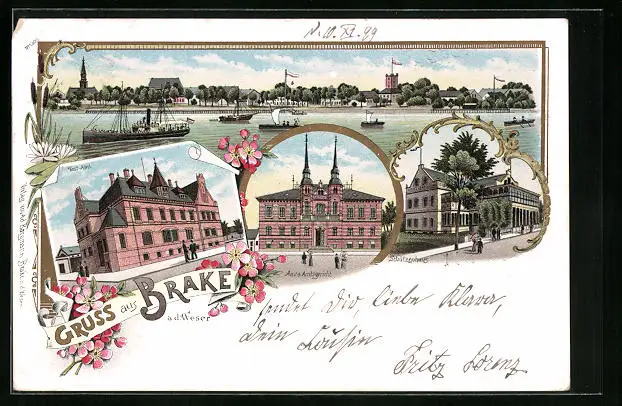 N. 10. XI. 99
Post-Amt.
Amts-Gericht
Schützenhaus
GRUSS aus BRAKE
a.d. Weser
sendet Dir, liebe Klara,
dein Cousin
Fritz Lorenz